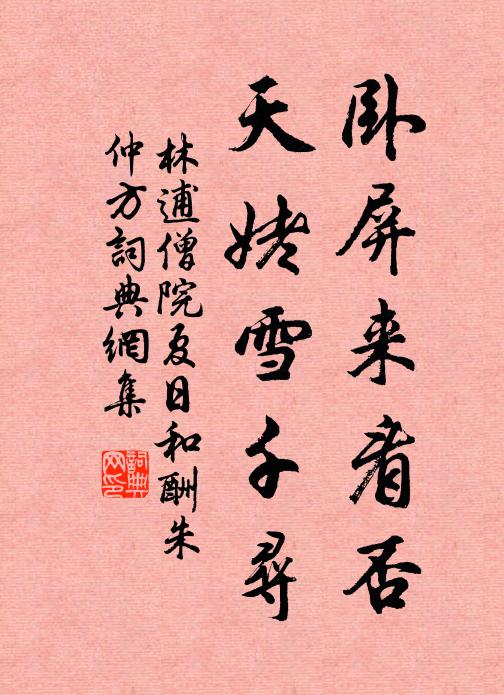 卧屏来看否
天姥雪千尋
林逋僧院夏日和酬朱
仲方詞典網集
詞典
网印